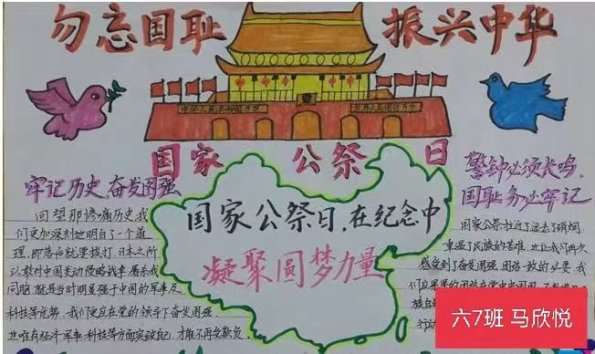 勿忘国耻 振兴中华
国家公祭日
牢记历史 奋发图强
回望那惨痛历史我
们更加深刻地明白了一个道
理,即落后就要挨打,日本之所
以敢对中国发动侵略战争,看
就是当时明显强于中国的军事及
科技等优势,我们更应在党的领导下奋发图强,
也唯有经济军事科技等方面突破,才能不再受欺负。
国家公祭日,在纪念中
凝聚圆梦力量
警钟必须长鸣,
国耻务必牢记
国家公祭
重温了民族的苦难,也让我们再次
感受到了奋发图强 团结一致的必要,我
六7班 马欣悦